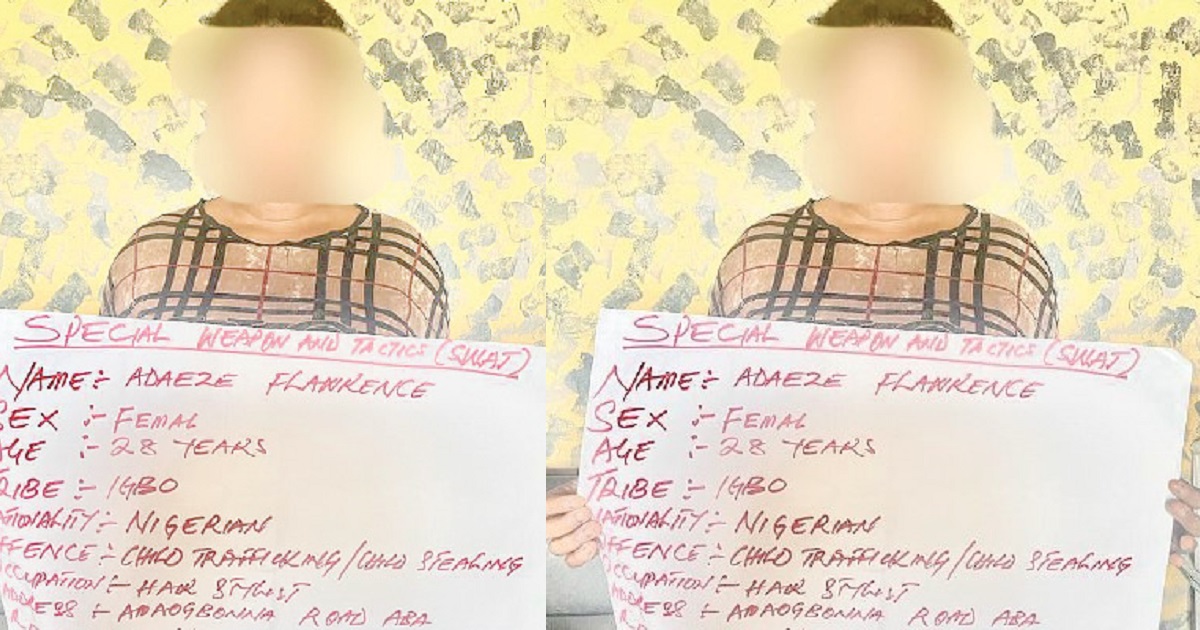 SPECIAL WEAPON AND TACTICS (SWAT)
NAME:- ADAEZE FLAWRENCE
SEX :- FEMAL
AGE :- 28 YEARS
RIBE :- IGBO
ATIONALITY:- NIGERIAN
FFENCE:- CHILD TRAFFICKING/CHILD STEALING
CCUPATION:- HAIR STYLIST
DDRESS :- AMAOGBONNA ROAD ABA
SPECIAL WEAPON AND TACTICS (SWAT)
NAME:- ADAEZE FLAWRENCE
SEX :- FEMAL
AGE :- 28 YEARS
TRIBE :- IGBO
NATIONALITY:- NIGERIAN
OFFENCE:- CHILD TRAFFICKING/CHILD STEALING
OCCUPATION:- HAIR STYLIST
ADDRESS :- AMAOGBONNA ROAD ABA